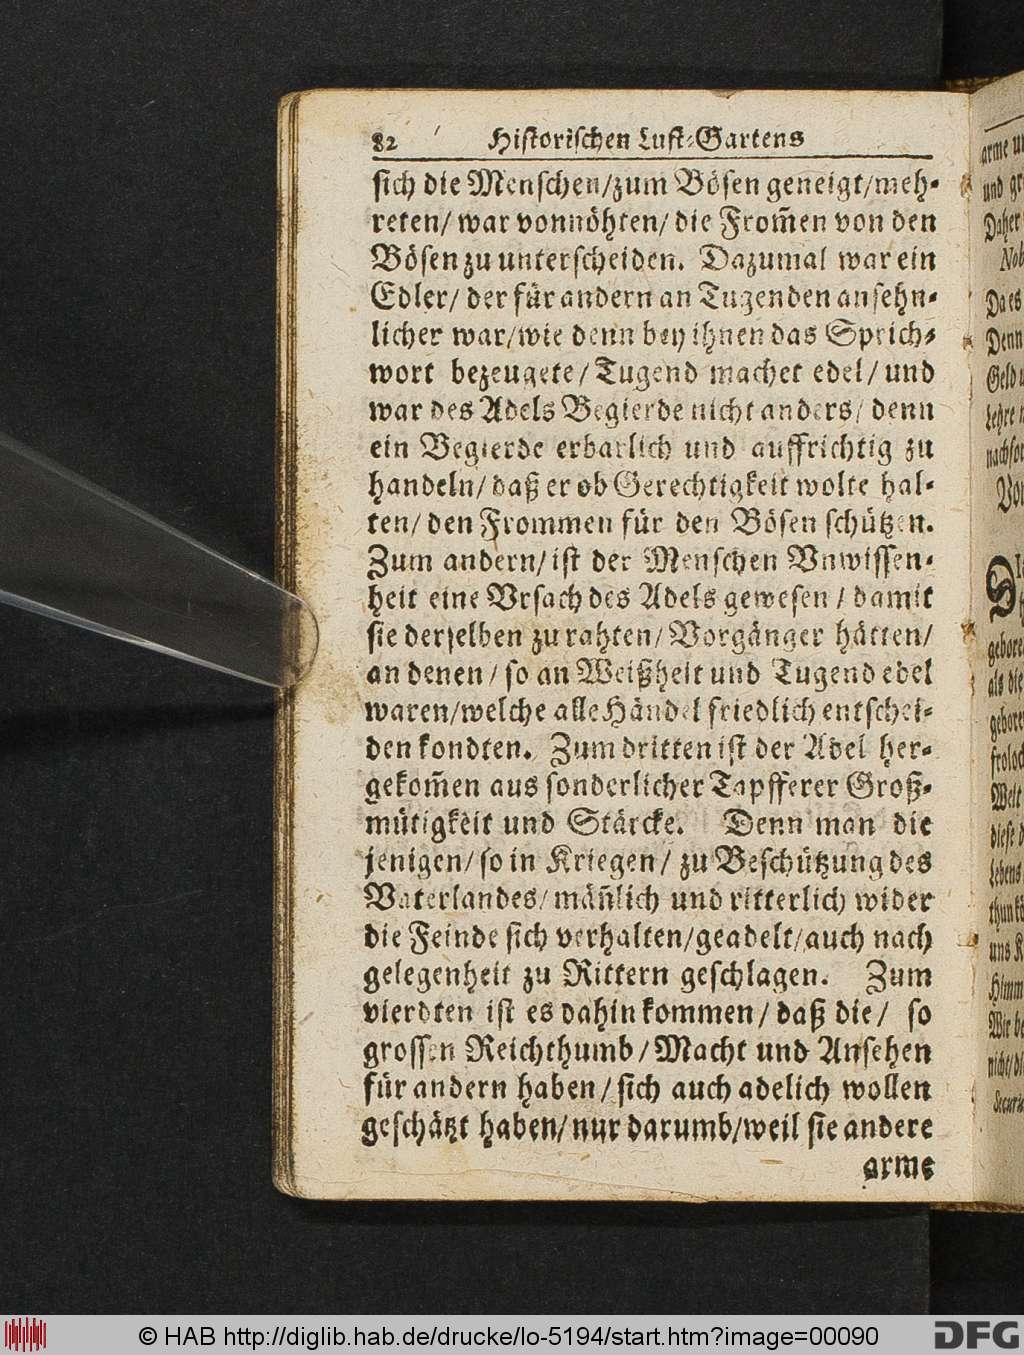 82 Historischen Lust-Gartens
sich die Menschen/zum Bösen geneigt/meh-
reten/ war vonnöhten/ die From̃en von den
Bösen zu unterscheiden. Dazumal war ein
Edler/ der für andern an Tugenden ansehn-
licher war/wie denn bey ihnen das Sprich-
wort bezeugete/ Tugend machet edel/ und
war des Adels Begierde nicht anders/ denn
ein Begierde erbarlich und auffrichtig zu
handeln/ daß er ob Gerechtigkeit wolte hal-
ten/ den Frommen für den Bösen schützen.
Zum andern/ ist der Menschen Vnwissen-
heit eine Vrsach des Adels gewesen / damit
sie derselben zu rahten/ Vorgänger hätten/
an denen / so an Weißheit und Tugend edel
waren/welche alle Händel friedlich entschei-
den kondten. Zum dritten ist der Adel her-
gekom̃en aus sonderlicher Tapfferer Groß-
mütigkeit und Stärcke. Denn man die
jenigen/ so in Kriegen / zu Beschützung des
Vaterlandes/ mäñlich und ritterlich wider
die Feinde sich verhalten/geadelt/auch nach
gelegenheit zu Rittern geschlagen. Zum
vierdten ist es dahin kommen/ daß die/ so
grossen Reichthumb / Macht und Ansehen
für andern haben / sich auch adelich wollen
geschätzt haben/ nur darumb/weil sie andere
arme
arme
und
Daher
Da es
Denn
Geld
Lehre
gebore
als die
gebore
froloc
Welt
diese
Lebens
uns
Himm
Wir
nicht/
© HAB http://diglib.hab.de/drucke/lo-5194/start.htm?image=00090
DFG